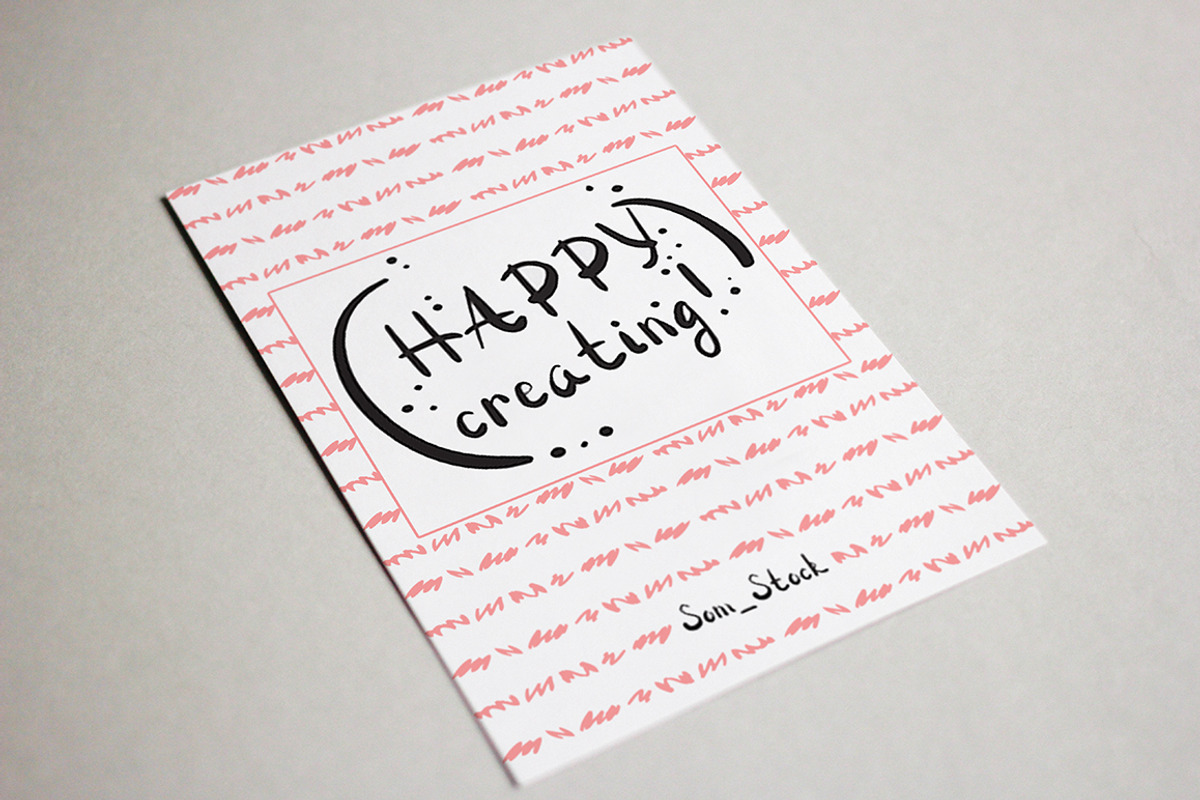 HAPPY
creating!
Som_Stock